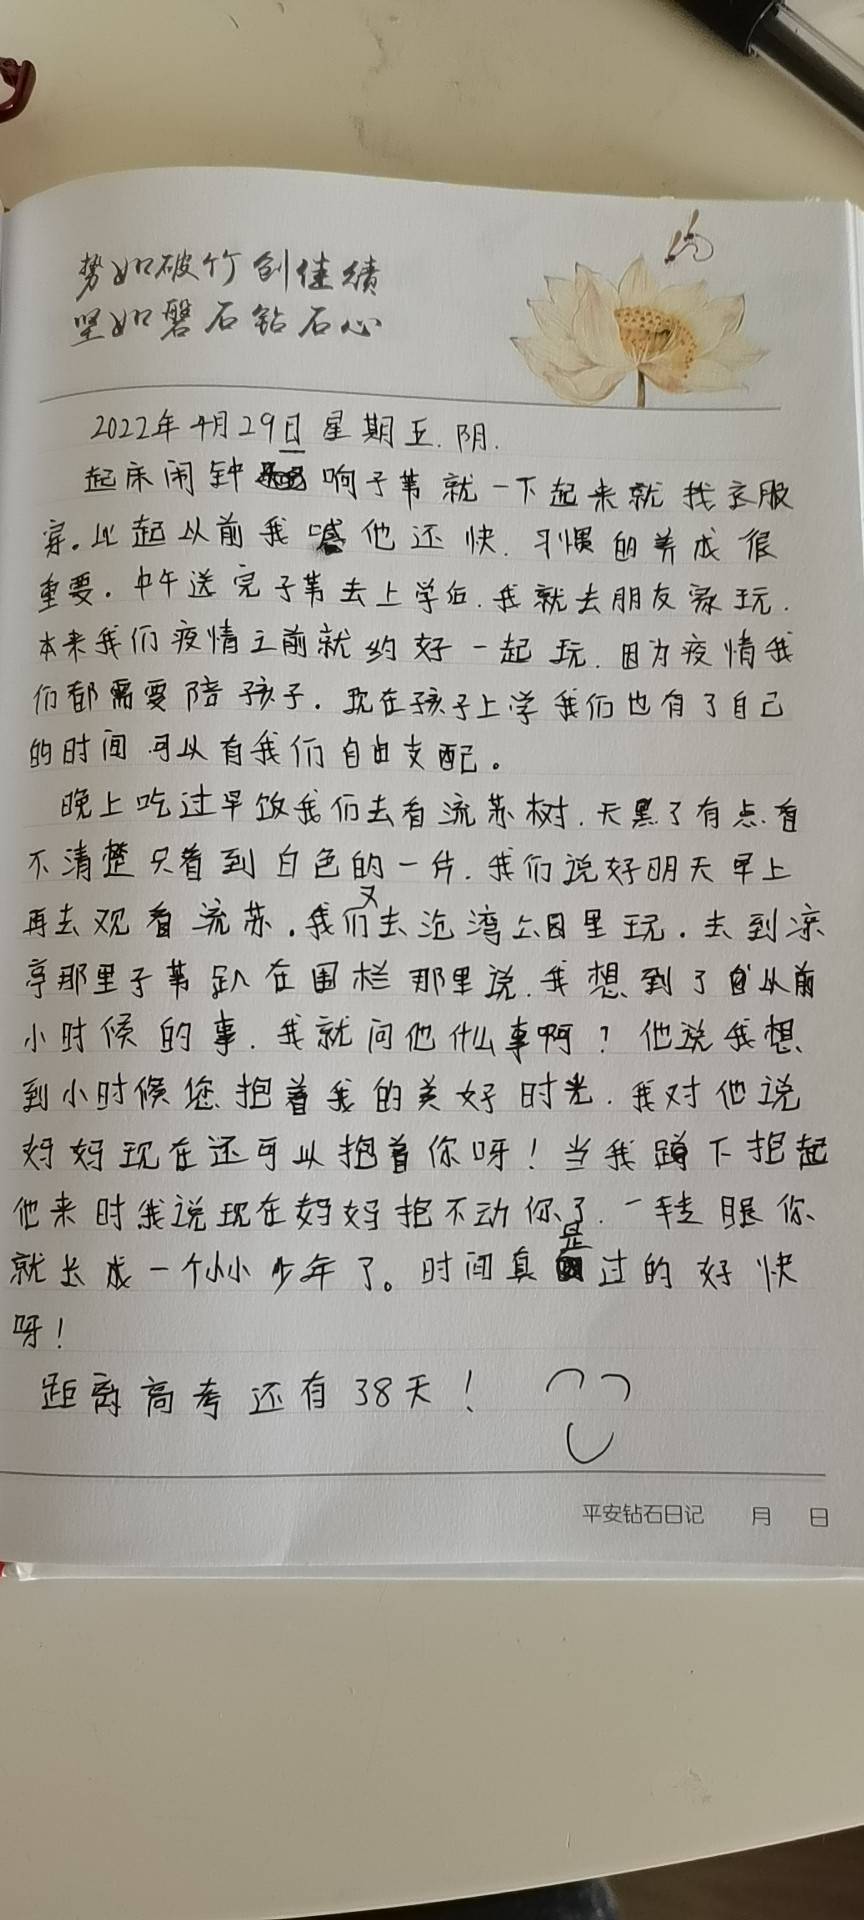 势如破竹创佳绩
坚如磐石钻石心
2022年4月29日星期五.阴.
起床闹钟响子苇就一下起来就找衣服
穿。比起以前我喊他还快.习惯的养成很
重要。中午送完子苇去上学后.我就去朋友家玩.
本来我们疫情之前就约好一起玩.因为疫情我
们都需要陪孩子.现在孩子上学我们也有了自己
的时间可以有我们自由支配。
晚上吃过早饭我们去看流苏树.天黑了有点看
不清楚只看到白色的一片.我们说好明天早上
再去观看流苏.我们又去沧湾公园里玩.去到凉
亭那里子苇趴在围栏那里说.我想到了以前
小时候的事.我就问他什么事啊?他说我想
到小时候您抱着我的美好时光.我对他说
妈妈现在还可以抱着你呀!当我蹲下抱起
他来时我说现在妈妈抱不动你了.一转眼你
就长成一个小小少年了。时间真是过的好快
呀!
距离高考还有38天!
平安钻石日记 月 日